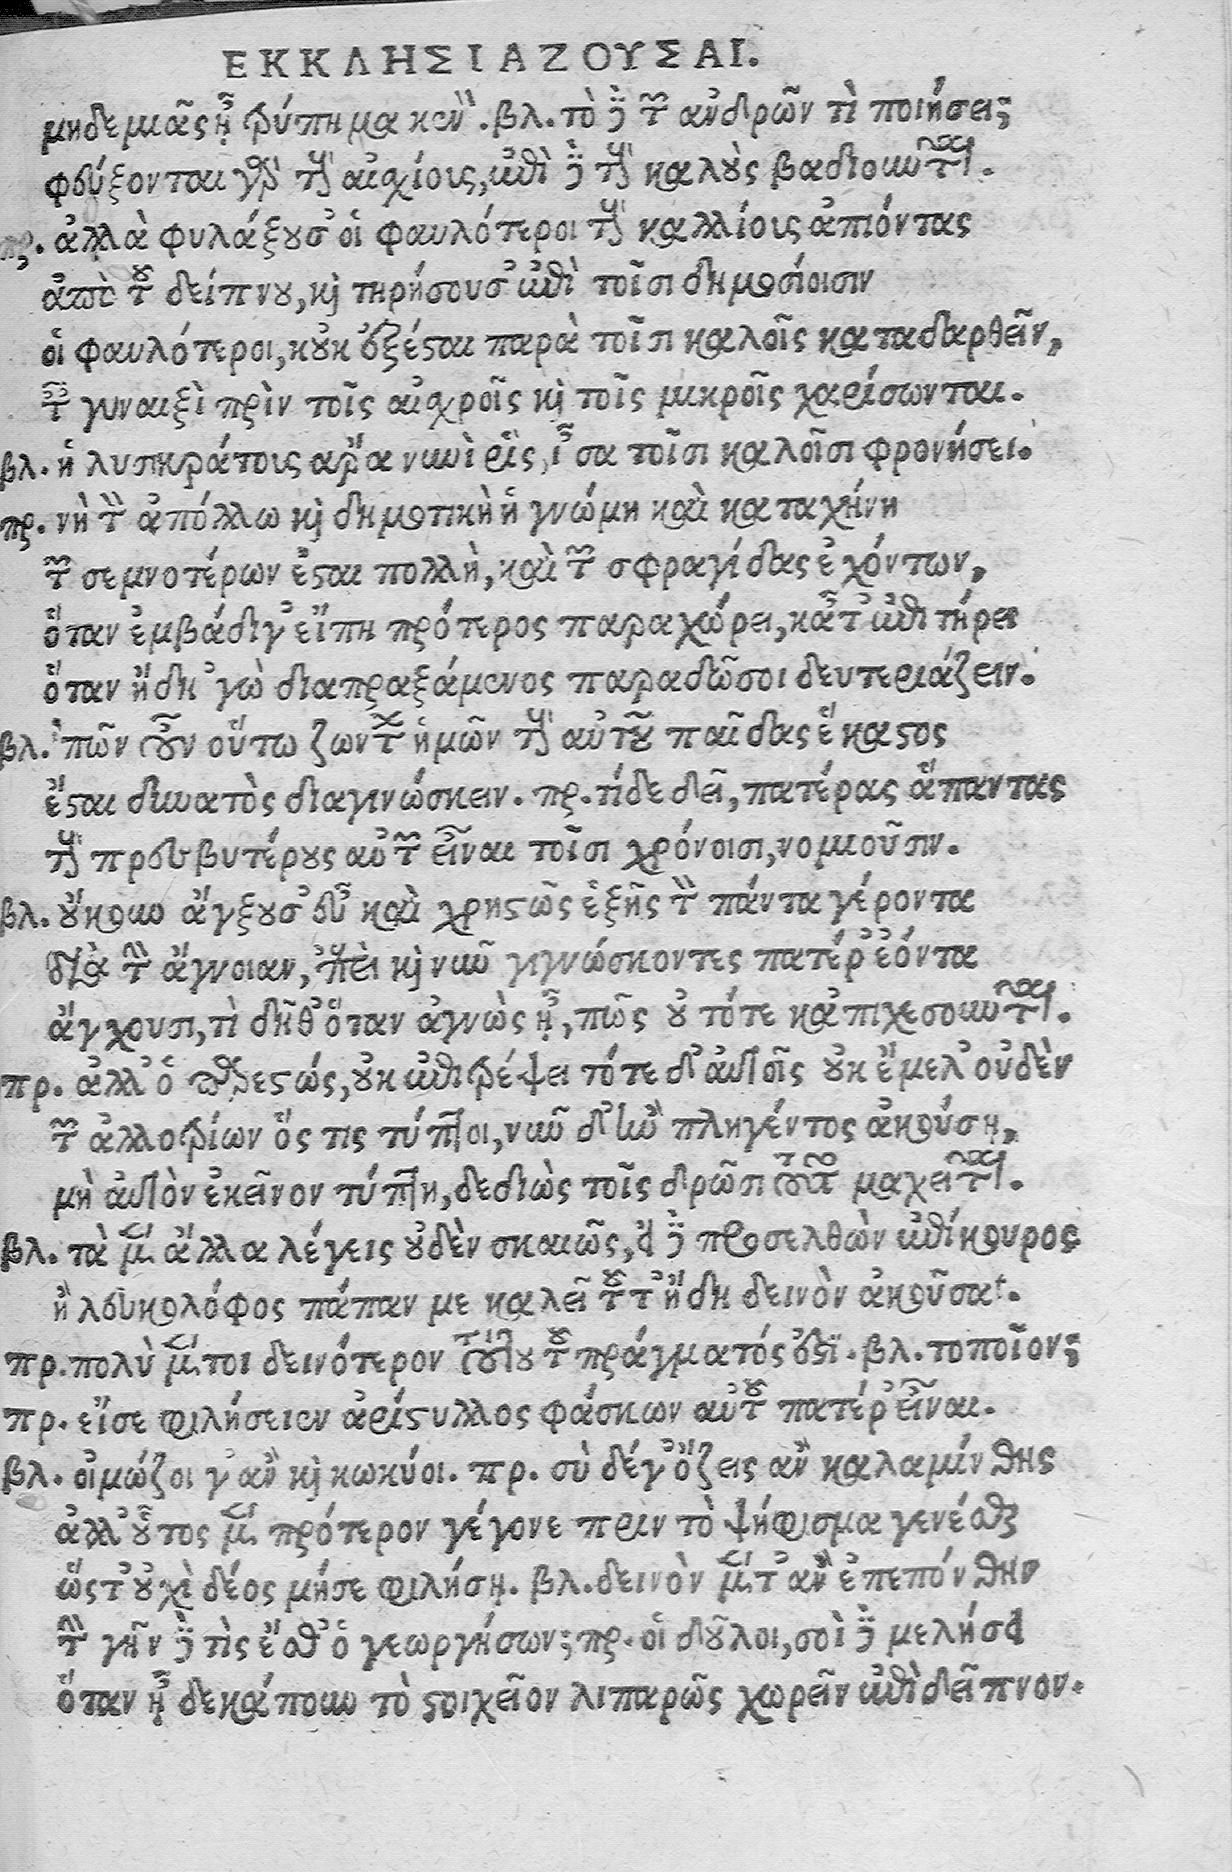 ΕΚΚΛΗΣΙΑΖΟΥΣΑΙ.
μηδεμιᾶς ᾖ τρύπημα κενὸν. βλ. τὸ δὲ τῶν ἀνδρῶν τὶ ποιήσει;
φεύξονται γὰρ τοὺς αἰσχίους, ἐπὶ δὲ τοὺς καλοὺς βαδιοῦνται.
πρ. ἀλλὰ φυλάξουσ' οἱ φαυλότεροι τοὺς καλλίους ἀπιόντας
ἀπὸ τοῦ δείπνου, καὶ τηρήσουσ' ἐπὶ τοῖσι δημοσίοισιν
οἱ φαυλότεροι, κοὐκ ἐξέσται παρὰ τοῖσι καλοῖς καταδαρθεῖν,
ταῖς γυναιξὶ πρὶν τοῖς αἰσχροῖς καὶ τοῖς μικροῖς χαρίσωνται.
βλ. ἡ λυσικράτους ἄρα νυνὶ ῥὶς, ἶσα τοῖσι καλοῖσι φρονήσει.
πρ. νὴ τὸν ἀπόλλω καὶ δημοτικὴ ἡ γνώμη καὶ καταχήνη
τῶν σεμνοτέρων ἔσται πολλὴ, καὶ τῶν σφραγίδας ἐχόντων,
ὅταν ἐμβάδι γ' εἴπη πρότερος παραχώρει, κᾆτ' ἐπιτήρει
ὅταν ἤδη 'γὼ διαπραξάμενος παραδῶσοι δευτεριάζειν.
βλ. πῶν οὖν οὕτω ζώντων ἡμῶν τοὺς αὐτοῦ παῖδας ἕκαστος
ἔσται δυνατὸς διαγινώσκειν. πρ. τίδε δεῖ, πατέρας ἅπαντας
τοὺς πρεσβυτέρους αὐτῶν εἶναι τοῖσι χρόνοισι, νομιοῦσιν.
βλ. οὔκουν ἄγξουσ' εὖ καὶ χρηστῶς ἑξῆς τὸν πάντα γέροντα
διὰ τὴν ἄγνοιαν, ἐπεὶ καὶ νῦν γιγνώσκοντες πατέρ' ἐόντα
ἄγχουσι, τὶ δῆθ' ὅταν ἀγνὼς ᾖ, πῶς οὐ τότε κἀπιχεσοῦνται.
πρ. ἀλλ' ὁ παρεστώς, οὐκ ἐπιτρέψει τότε δ' αὐτοῖς οὐκ ἔμελ' οὐδὲν
τῶν ἀλλοτρίων ὅς τις τύπτοι, νῦν δ' ἢν πληγέντος ἀκούσῃ,
μὴ αὐτὸν ἐκεῖνον τύπτη, δεδιὼς τοῖς δρῶσι τοῦτο μαχεῖται.
βλ. τὰ μὲν ἄλλα λέγεις οὐδὲν σκαιῶς, εἰ δὲ προσελθὼν ἐπίκουρος
ἢ λευκολόφος πάπαν με καλεῖ τοῦτ' ἤδη δεινὸν ἀκοῦσαι.
πρ. πολὺ μέντοι δεινότερον τούτου τοῦ πράγματός ἐστὶ. βλ. τοποῖον;
πρ. εἴσε φιλήσειεν ἀρίστυλλος φάσκων αὑτοῦ πατέρ' εἶναι.
βλ. οἰμώζοι γ' ἂν καὶ κωκύοι. πρ. σὺ δέγ' ὄζεις ἂν καλαμίνθης
ἀλλ' οὗτος μὲν πρότερον γέγονε πριν τὸ ψήφισμα γενέσθαι
ὥστ' οὐχὶ δέος μήσε φιλήσῃ. βλ. δεινὸν μέντ' ἂν ἐπεπόνθην
τὴν γῆν δὲ τὶς ἔσθ' ὁ γεωργήσων; πρ. οἱ δοῦλοι, σοὶ δὲ μελήσει
ὅταν ᾖ δεκάπουν τὸ στοιχεῖον λιπαρῶς χωρεῖν ἐπὶ δεῖπνον.